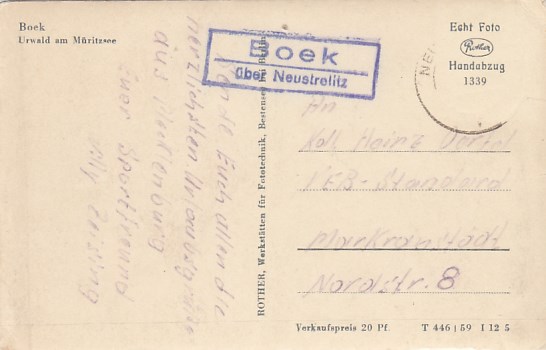 Boek
Urwald am Müritzsee
Boek
über Neustrelitz
Echt Foto
Rother
Handabzug
1339
NE
Euch allen die
herzlichsten Urlaubsgrüße
aus Mecklenburg
Euer Sportfreund
Willy
ROTHER, Werkstätten für Fototechnik, Bestensee bei Berlin
An
Koll. Heinz Oertel
VEB-Standard
Markranstädt
Nordstr. 8
Verkaufspreis 20 Pf. T 446|59 I 12 5